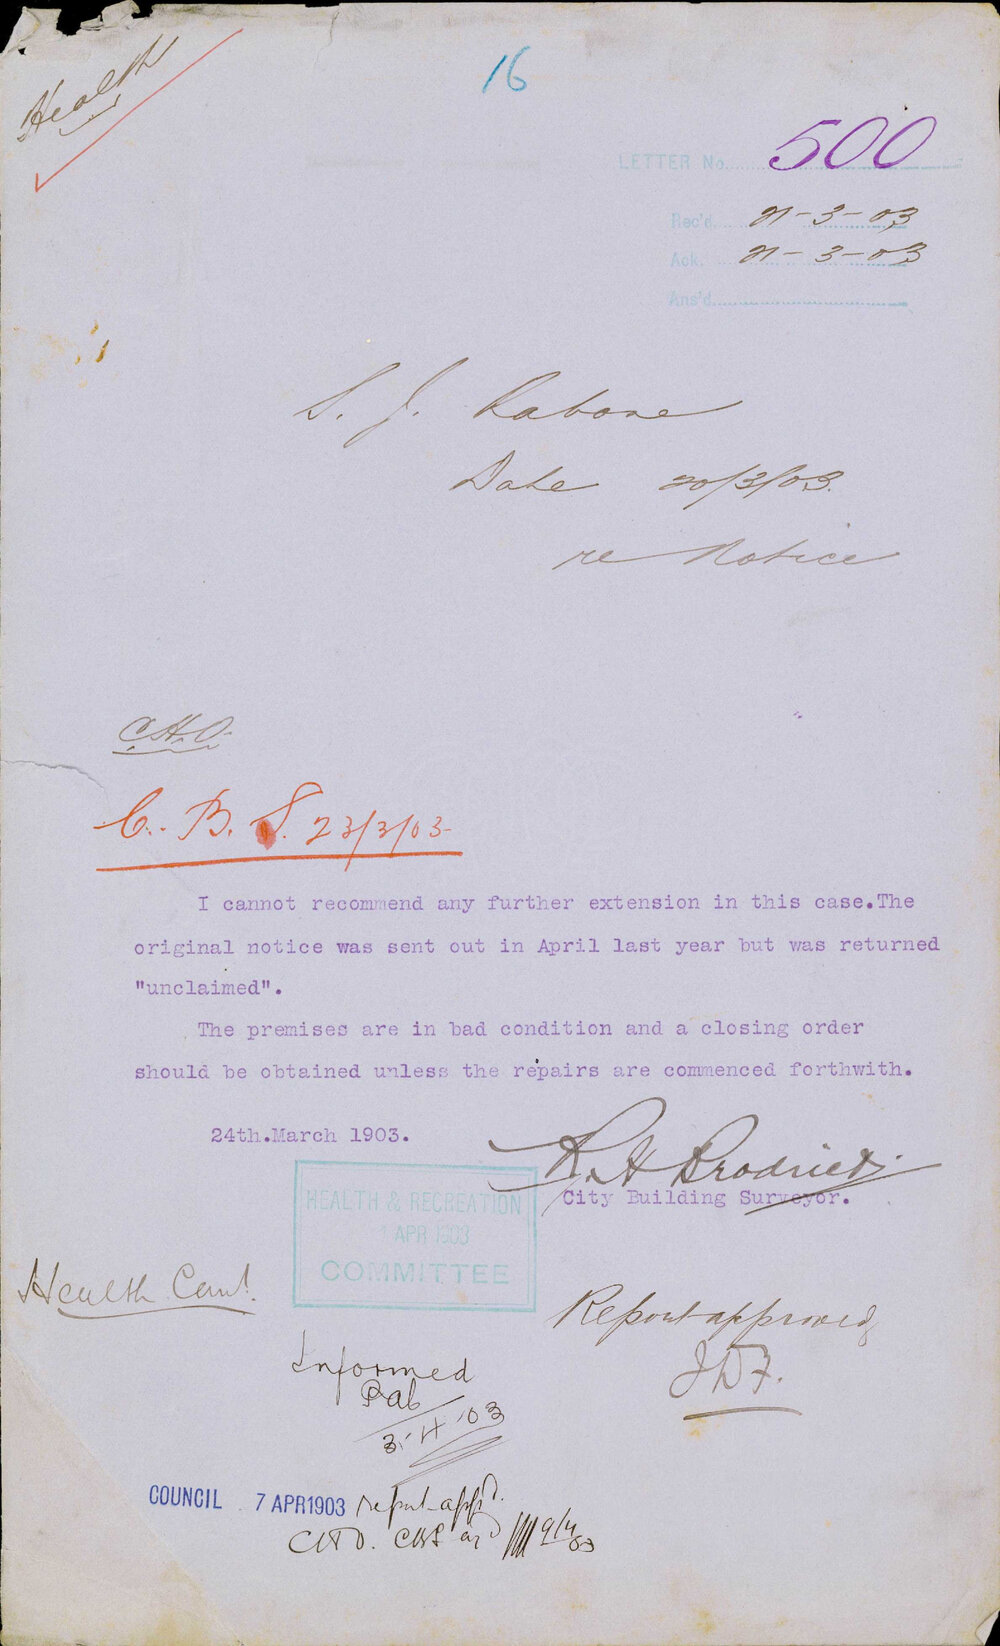 Health
16
LETTER No. 500
Rec'd. 21-3-03
Ack. 21-3-03
Ans'd.
S. J. Rabone
Date 20/3/03.
re Notice
C.H.O.
C. B. S. 23/3/03-
I cannot recommend any further extension in this case.The
original notice was sent out in April last year but was returned
"unclaimed".
The premises are in bad condition and a closing order
should be obtained unless the repairs are commenced forthwith.
24th.March 1903.
R. H Brodrick.
City Building Surveyor.
HEALTH & RECREATION
1 APR 1903
COMMITTEE
Health Comt.
Report approved
Informed
3-4-03
COUNCIL 7 APR 1903 report appd.
CHO. CBS
9/4/03